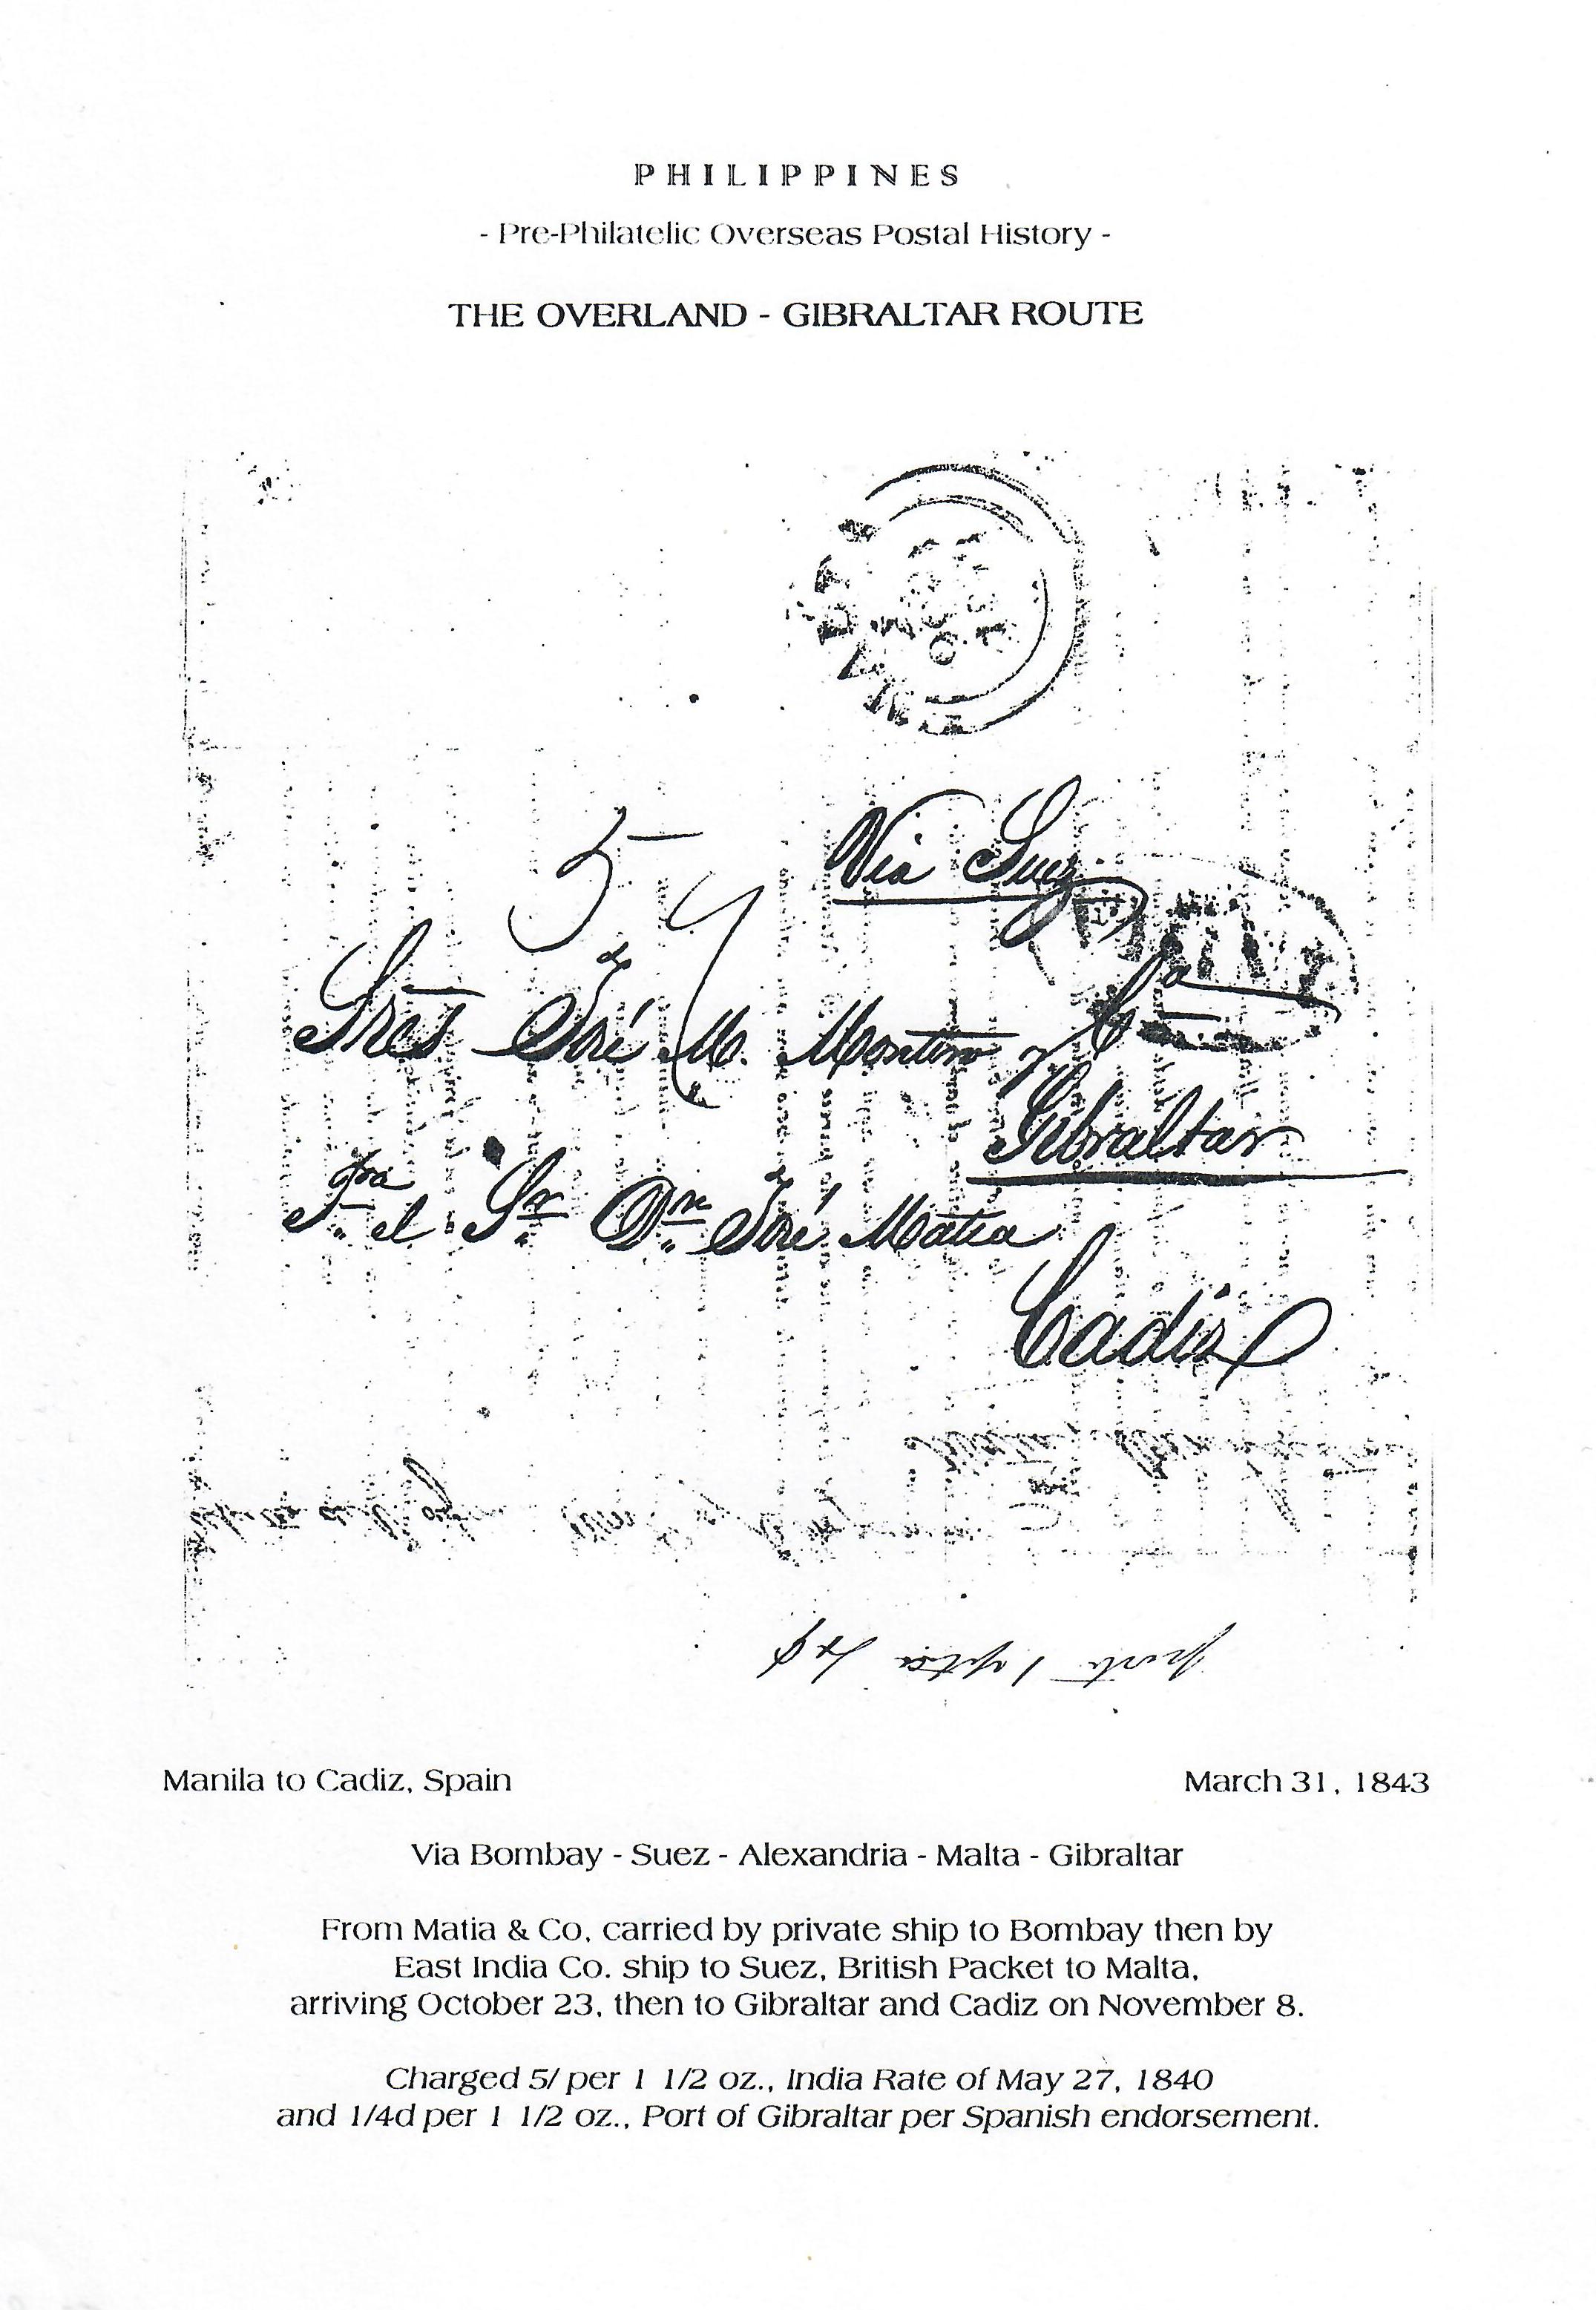 PHILIPPINES
- Pre-Philatelic Overseas Postal History -
THE OVERLAND - GIBRALTAR ROUTE
Via Suez
5
Sres José M. Montero y Ca
Gibraltar
Pra el Sr Dn José Matia
Cadiz
Manila to Cadiz, Spain
March 31, 1843
Via Bombay - Suez - Alexandria - Malta - Gibraltar
From Matia & Co, carried by private ship to Bombay then by
East India Co. ship to Suez, British Packet to Malta,
arriving October 23, then to Gibraltar and Cadiz on November 8.
Charged 5/ per 1 1/2 oz., India Rate of May 27, 1840
and 1/4d per 1 1/2 oz., Port of Gibraltar per Spanish endorsement.